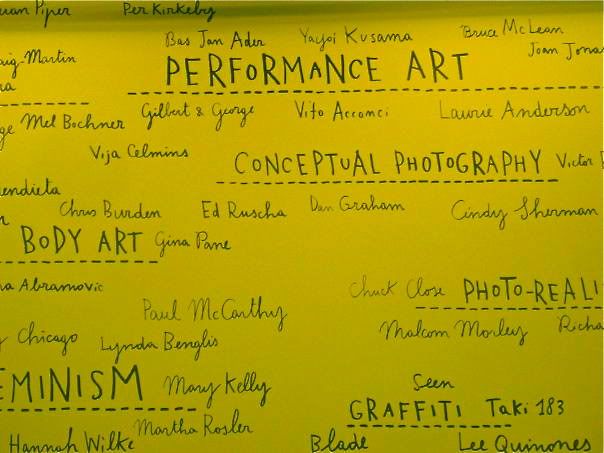 Piper Per Kirkeby
Bas Jan Ader Yayoi Kusama Bruce McLean
Joan Jonas
Martin PERFORMANCE ART
Mel Bochner Gilbert & George Vito Acconci Laurie Anderson
Vija Celmins CONCEPTUAL PHOTOGRAPHY Victor
endieta
Chris Burden Ed Ruscha Dan Graham Cindy Sherman
BODY ART Gina Pane
Abramovic
Chuck Close PHOTO-REALI
Paul McCarthy
Chicago Lynda Benglis Malcom Morley Richa
EMINISM Mary Kelly Seen
Martha Rosler GRAFFITI Taki 183
Hannah Wilke Blade Lee Quinones